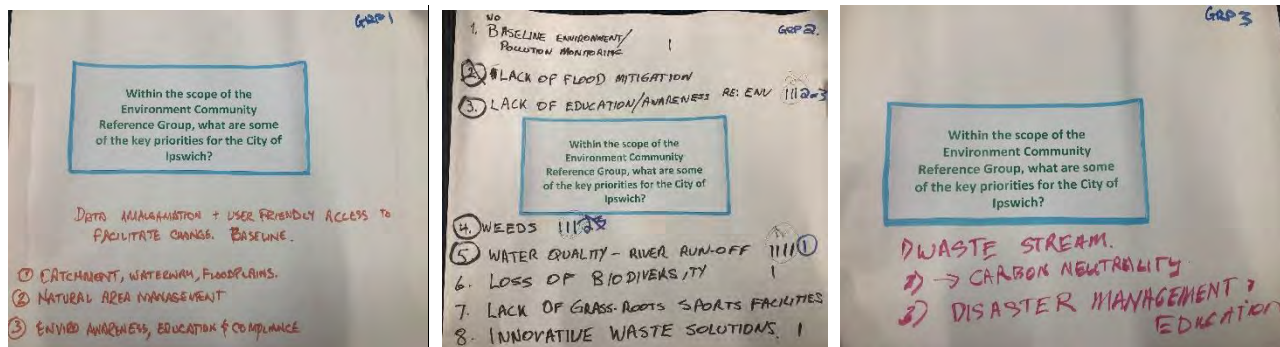 GRP 1
Within the scope of the
Environment Community
Reference Group, what are some
of the key priorities for the City of
Ipswich?
DATA AMALGAMATION + USER FRIENDLY ACCESS TO
FACILITATE CHANGE. BASELINE.
① CATCHMENT, WATERWAY, FLOODPLAINS.
② NATURAL AREA MANAGEMENT
③ ENVIRO AWARENESS, EDUCATION & COMPLIANCE
GRP 2.
NO
1. BASELINE ENVIRONMENT/
POLLUTION MONITORING I
② LACK OF FLOOD MITIGATION
③ LACK OF EDUCATION/AWARENESS RE: ENV III 2-3
Within the scope of the
Environment Community
Reference Group, what are some
of the key priorities for the City of
Ipswich?
④ WEEDS III
⑤ WATER QUALITY – RIVER RUN-OFF IIII ①
6. LOSS OF BIODIVERSITY I
7. LACK OF GRASS-ROOTS SPORTS FACILITIES
8. INNOVATIVE WASTE SOLUTIONS. I
GRP 3
Within the scope of the
Environment Community
Reference Group, what are some
of the key priorities for the City of
Ipswich?
1) WASTE STREAM.
2) → CARBON NEUTRALITY
3) DISASTER MANAGEMENT,
EDUCATION